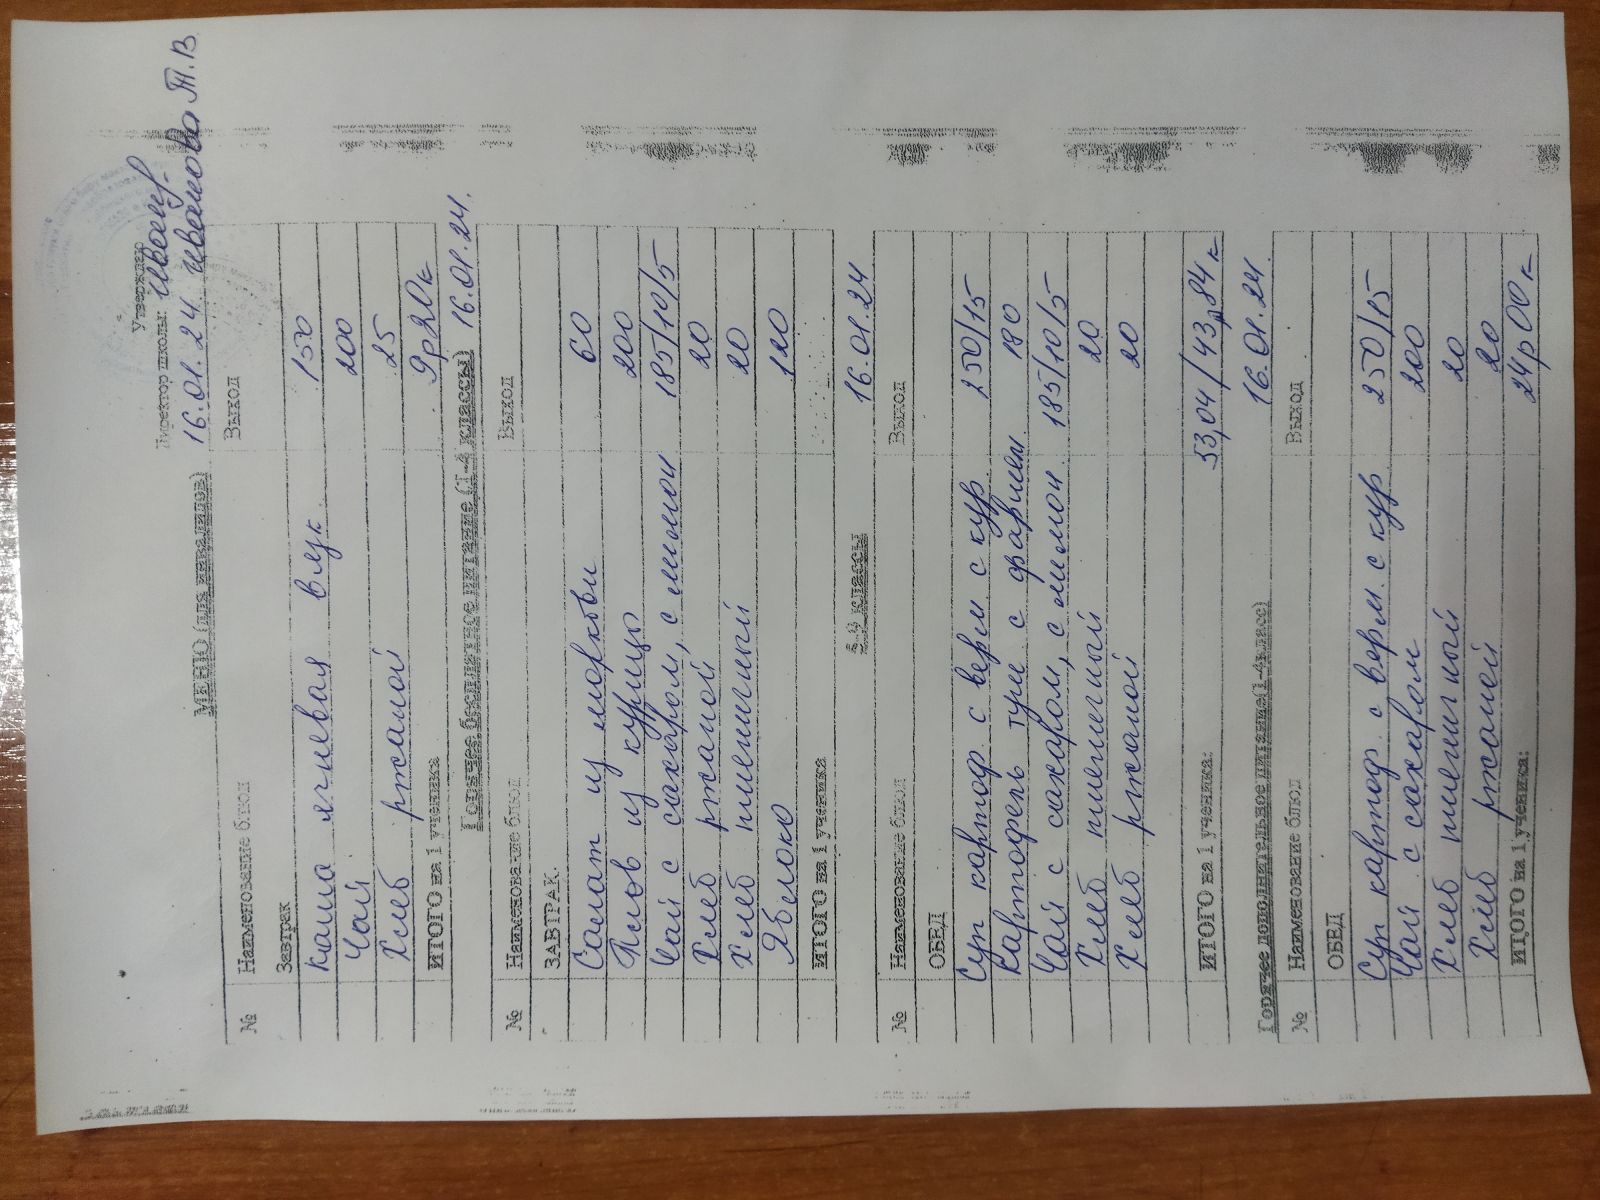 Утверждаю
Директор школы: Иванов
16.01.24 Иванова Т.В.
МЕНЮ (для инвалидов)
№ Наименование блюд Выход
Завтрак
каша ячневая вязк. 150
Чай 200
Хлеб ржаной 25
ИТОГО на 1 ученика 9р20к
Горячее бесплатное питание (1-4 классы) 16.01.24.
№ Наименование блюд Выход
ЗАВТРАК.
Салат из моркови 60
Плов из курицы 200
Чай с сахаром, с лимон 185/10/5
Хлеб ржаной 20
Хлеб пшеничный 20
Яблоко 120
ИТОГО на 1 ученика
5-9 классы 16.01.24
№ Наименование блюд Выход
ОБЕД
Суп картоф. с верм с кур 250/15
Картофель туш с фаршем. 180
Чай с сахаром, с лимон 185/10/5
Хлеб пшеничный 20
Хлеб ржаной 20
ИТОГО на 1 ученика: 53,04/43р84к
Горячее дополнительное питание(1-4класс) 16.01.24.
№ Наименование блюд Выход
ОБЕД
Суп картоф. с верм. с кур 250/15
Чай с сахаром 200
Хлеб пшеничный 20
Хлеб ржаной 20
ИТОГО на 1 ученика: 24р00к